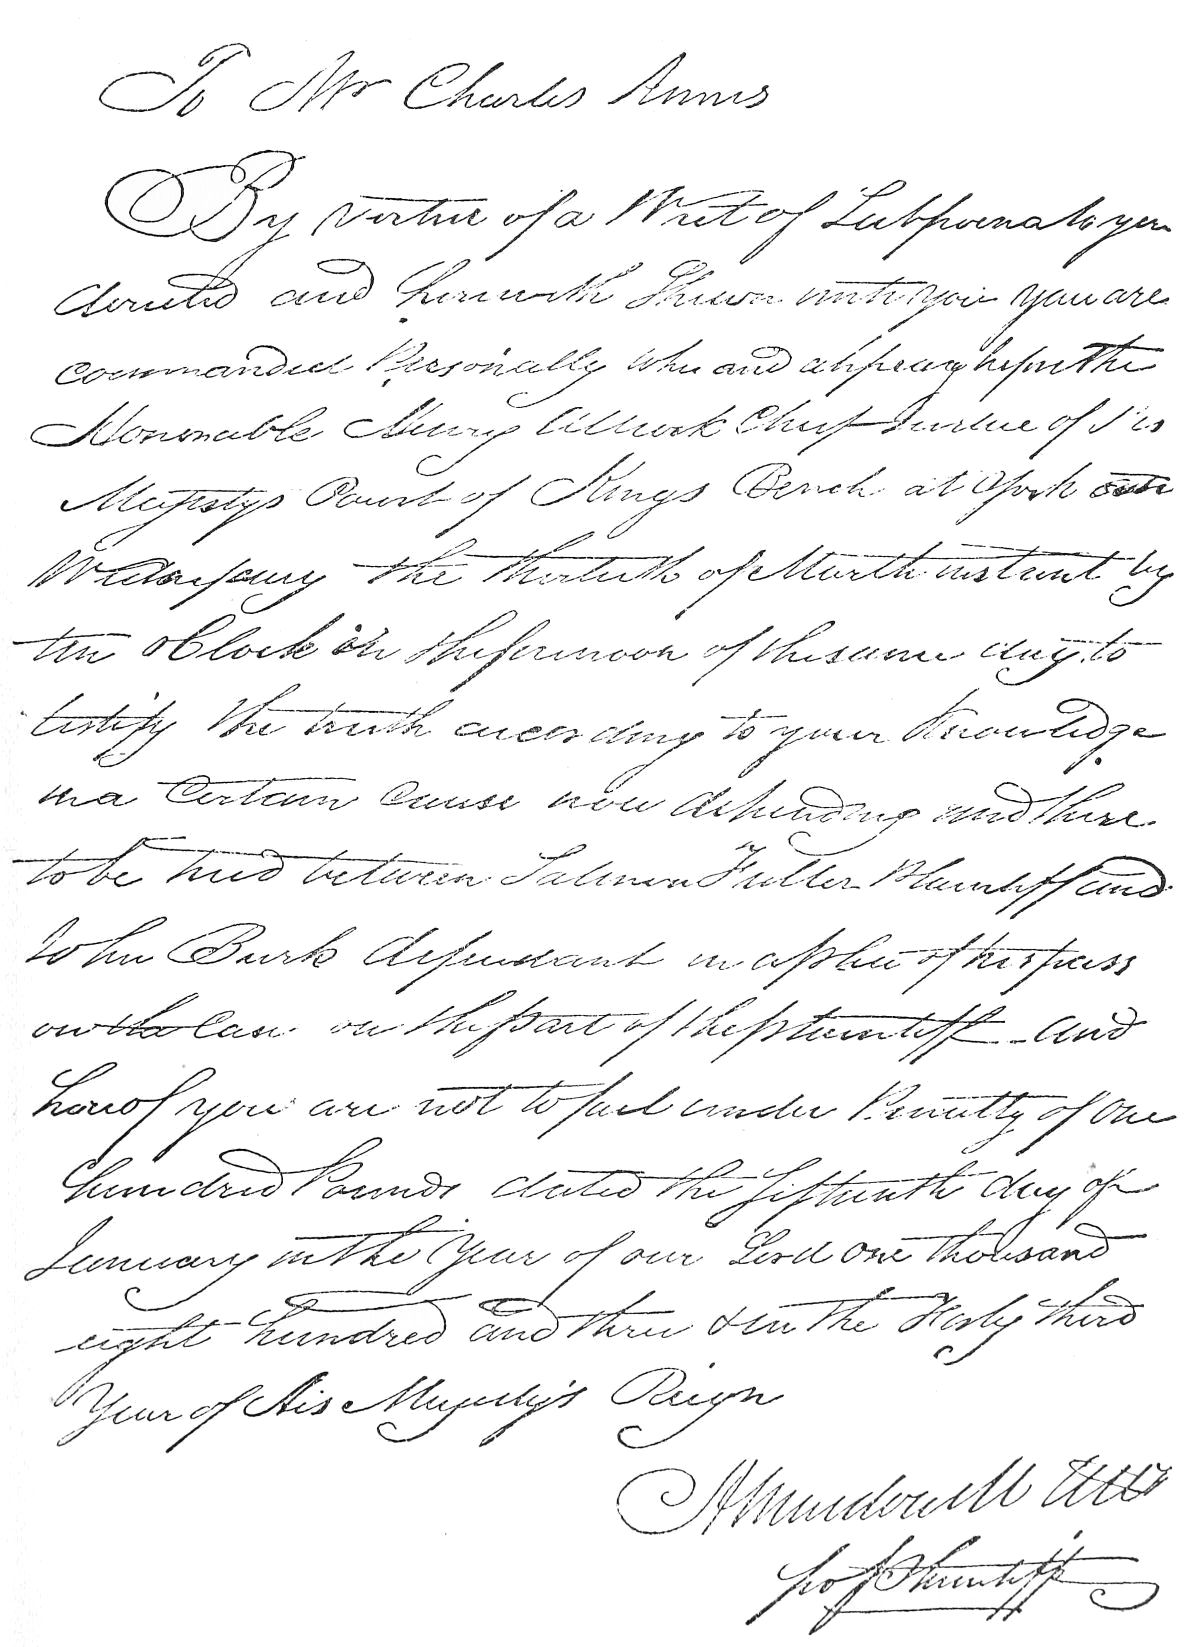 To Mr Charles Annis
By Virtue of a Writ of Subpoena to you
directed and herewith Shewn unto you you are
commanded Personally to be and appear before the
Honorable Henry Allcock Chief Justice of His
Majestys Court of Kings Bench at York on
Wednesday the thirtieth of March instant by
ten oClock in the forenoon of the same day to
testify the truth according to your Knowledge
in a Certain Cause now depending and there
to be tried between Salmon Fuller Plaintiff and
John Burk defendant in a plea of trespass
on the Case on the part of the plaintiff and
hereof you are not to fail under Penalty of One
hundred Pounds dated the fifteenth day of
January in the Year of our Lord one thousand
eight hundred and three & in the Forty third
Year of His Majesty's Reign
Atty
for Plaintiff